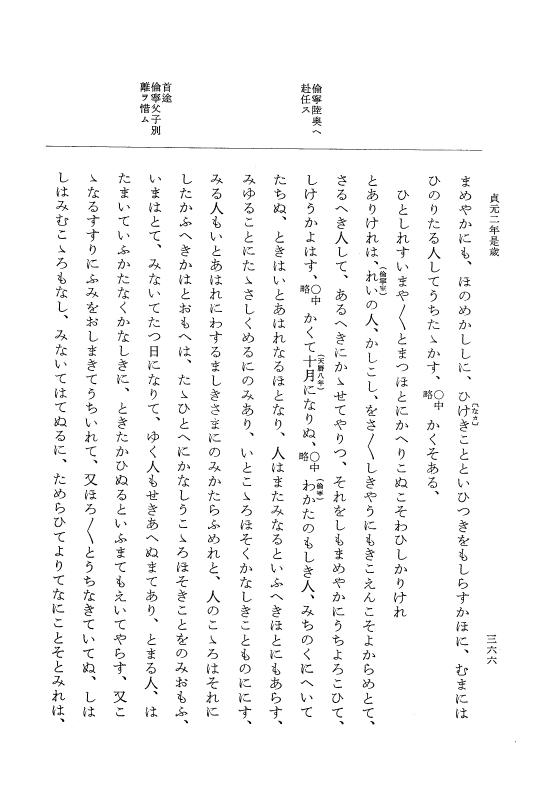 貞元二年是歳
三六六
まめやかにも、ほのめかししに、ひけきことといひつきをもしらすかほに、むまには
(なさ)
ひのりたる人してうちたゝかす、〇中略 かくそある、
ひとしれすいまや〳〵とまつほとにかへりこぬこそわひしかりけれ
とありけれは、れいの人、かしこし、をさ〳〵しきやうにもきこえんこそよからめとて、
(倫寧室)
さるへき人して、あるへきにかゝせてやりつ、それをしもまめやかにうちよろこひて、
しけうかよはす、〇中略 かくて十月になりぬ、〇中略 わかたのもしき人、みちのくにへいて
(天暦八年)
(倫寧)
たちぬ、ときはいとあはれなるほとなり、人はまたみなるといふへきほとにもあらす、
みゆることにたゝさしくめるにのみあり、いとこゝろほそくかなしきことものににす、
みる人もいとあはれにわするましきさまにのみかたらふめれと、人のこゝろはそれに
したかふへきかはとおもへは、たゝひとへにかなしうこゝろほそきことをのみおもふ、
いまはとて、みないてたつ日になりて、ゆく人もせきあへぬまてあり、とまる人、は
たまいていふかたなくかなしきに、ときたかひぬるといふまてもえいてやらす、又こ
ゝなるすすりにふみをおしまきてうちいれて、又ほろ〳〵とうちなきていてぬ、しは
しはみむこゝろもなし、みないてはてぬるに、ためらひてよりてなにことそとみれは、
倫寧陸奥へ
赴任ス
首途
倫寧父子別
離ヲ惜ム